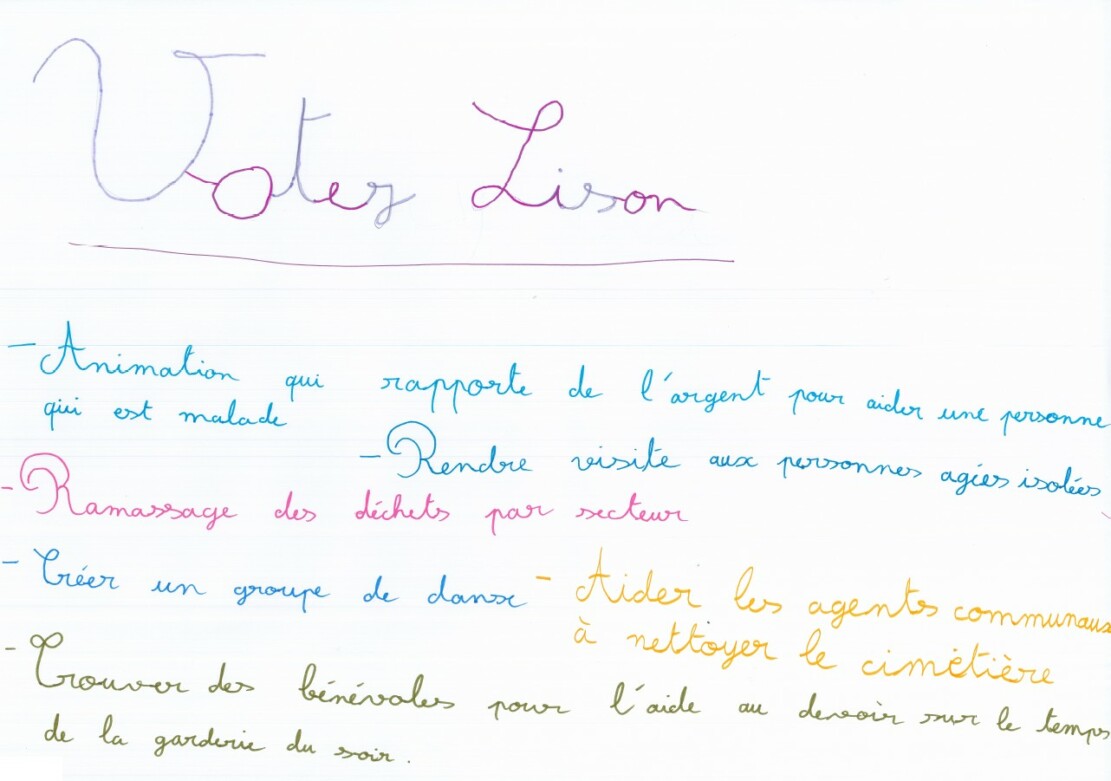 Votez Lison
- Animation qui rapporte de l'argent pour aider une personne
qui est malade
- Rendre visite aux personnes agées isolées
- Ramassage des déchets par secteur
- Créer un groupe de danse
- Aider les agents communaux
à nettoyer le cimétière
- Trouver des bénévoles pour l'aide au devoir sur le temps
de la garderie du soir.